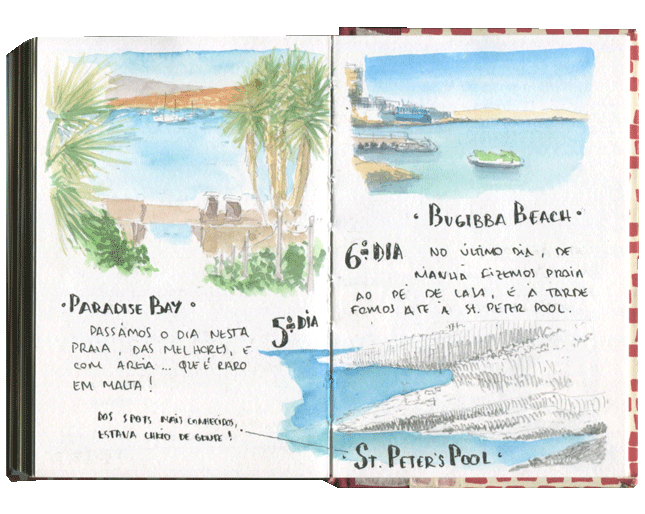 · PARADISE BAY ·
5º DIA
PASSÁMOS O DIA NESTA
PRAIA, DAS MELHORES, E
COM AREIA ... QUE É RARO
EM MALTA!
DOS SPOTS MAIS CONHECIDOS,
ESTAVA CHEIO DE GENTE!
· BUGIBBA BEACH ·
6º DIA
NO ÚLTIMO DIA, DE
MANHÃ FIZEMOS PRAIA
AO PÉ DE CASA, E À TARDE
FOMOS ATÉ À ST. PETER POOL.
· ST. PETER'S POOL ·